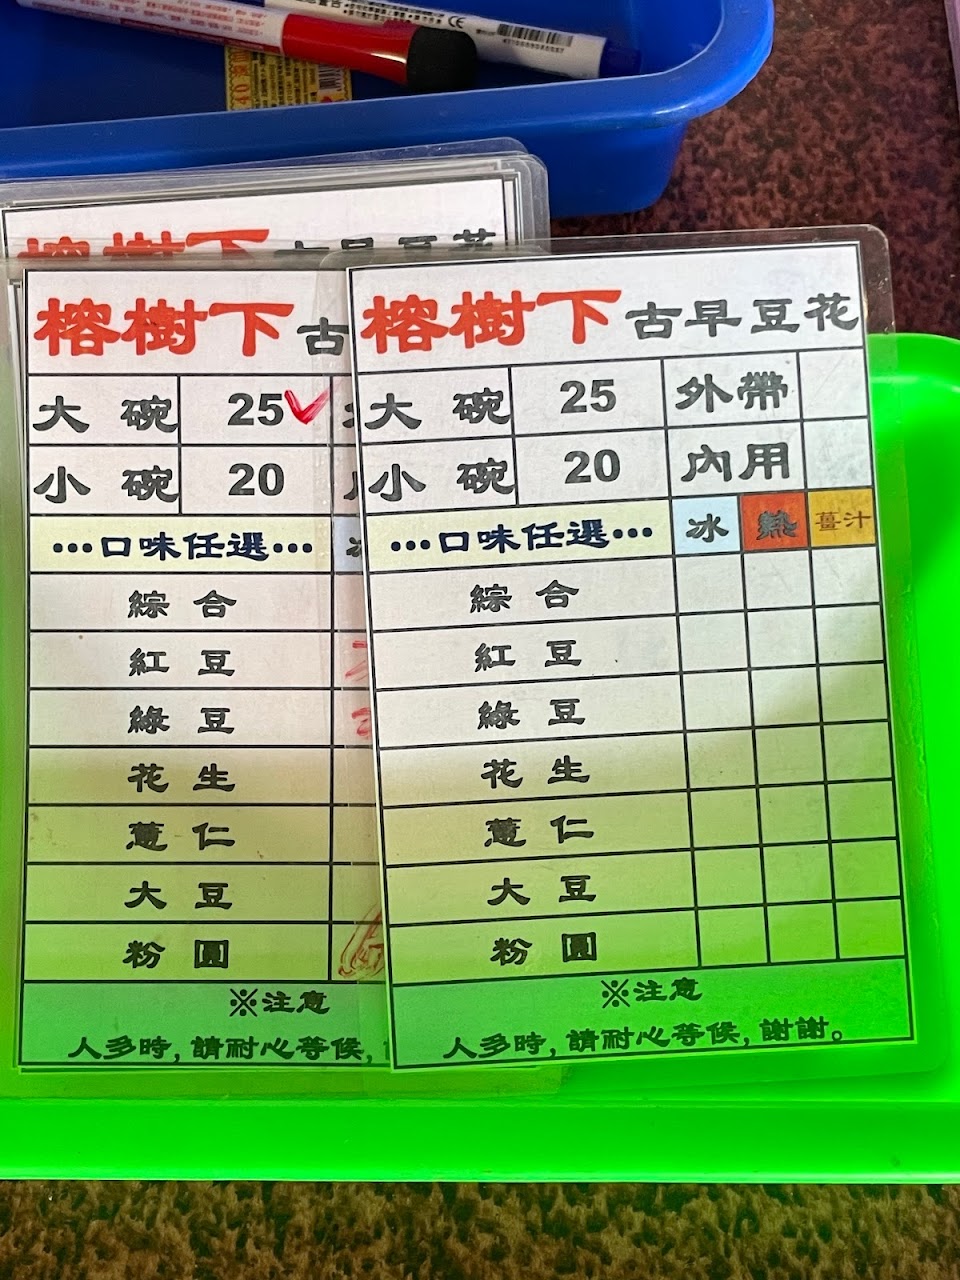 榕樹下古早豆花
榕樹下古
大碗 25✓
小碗 20
…口味任選…
綜合
紅豆
綠豆
花生
薏仁
大豆
粉圓
※注意
人多時,請耐心等候,
榕樹下古早豆花
大碗 25 外帶
小碗 20 內用
…口味任選… 冰 熱 薑汁
綜合
紅豆
綠豆
花生
薏仁
大豆
粉圓
※注意
人多時,請耐心等候,謝謝。